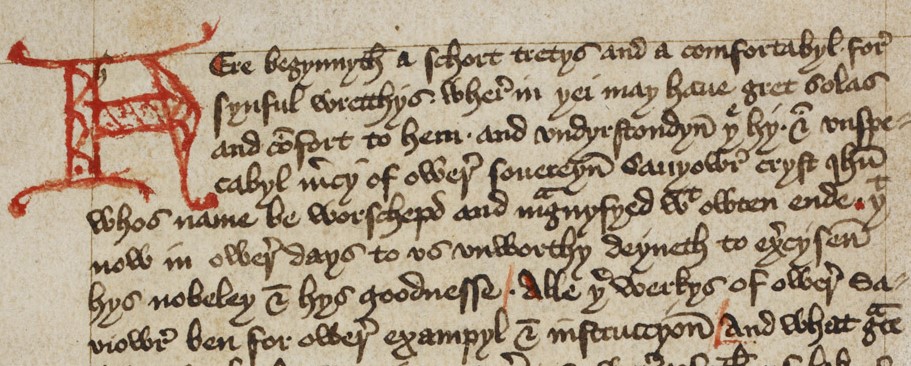 HEre begynnyth a schort tretys and a comfortabyl for
synful wrecchys. wher in þei may haue gret solas
and cōfort to hem. and vndyrstondyn þe hy. & vnspe-
cabyl mercy of ower souereyn Sauyowr cryst ihū
whos name be worschepd and magnyfyed wt owten ende. þt
now in ower days to vs vnworthy deyneth to exercysen
hys nobeley & hys goodnesse. Alle þe werkys of ower Sa-
viowr ben for ower exampyl & instruccyon And what grace